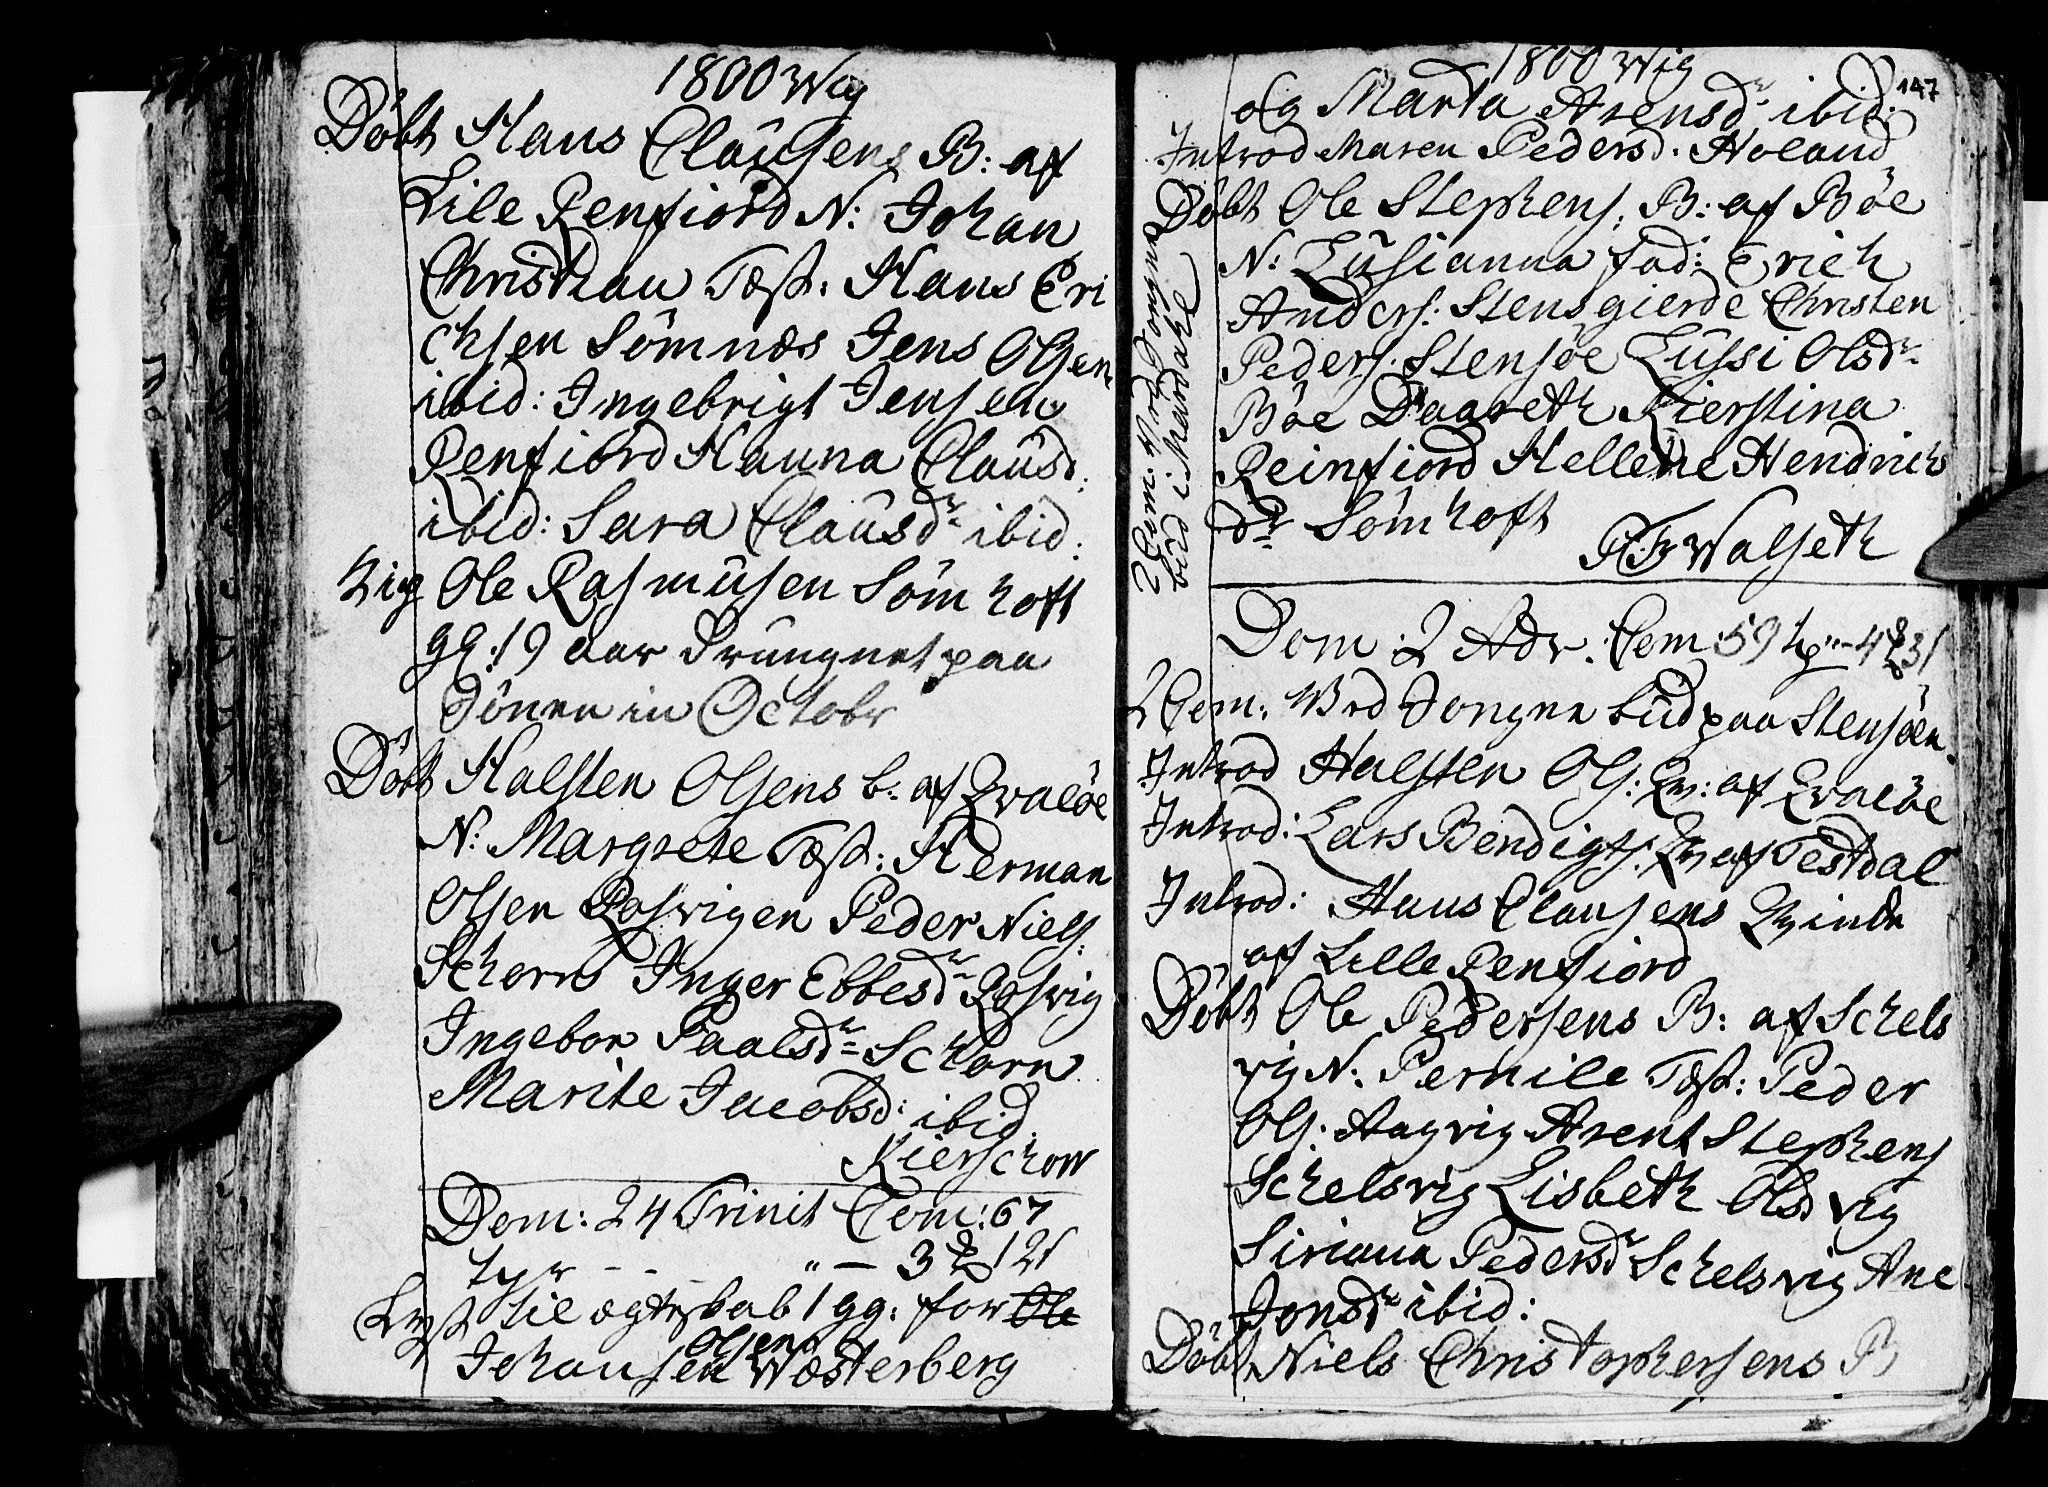 1800 Wig
Döbt Hans Clausens B: af
Lile Renfiord N: Johan
Christian Test: Hans Eri
chsen Sömnæs Jens Olsen
ibid: Ingebrigt Jensen
Renfiord Hanna Clausd:
ibid: Sara Clausdr ibid:
Lig Ole Rasmusen Sömhoft
gl: 19 aar Drungnet paa
Dönen in Octobr
Döbt Halsten Olsens b: af Qvalöe
N: Margrete Test: Herman
Olsen Rosvigen Peder Niels:
Schorn Inger Ebbesdr Rosvig
Ingebor Paalsdr Schorn
Marite Jacobsd: ibid
Kierschow
Dom: 24 Trinit Com: 67
3 121
Lyst til ægteskab 1 gg: for Ole
Olsen
Johansen Wæsterberg
1800 Wig
147
og Marta Arensdr ibid:
Introd Maren Pedersd: Holand
Döbt Ole Stephens: B: af Böe
N: Lusianna fad: Erich
Anders: Stensgierde Christen
Peders: Stensöe Lussi Olsdr
Böe Daareth Kierstina
Reinfiord Hellene Hendrichs
dr Sömhoft
Walseth
2 Com: Wed Jorgen
bud i
Dom: 2 Adv: Com: 59 4 31
2 Com: Wed Jorgen bud paa Stensöen
Introd Halsten Ols: Qv: af Qvalöe
Introd: Lars Bendigts: Qv af Testdal
Introd: Hans Clausens Qvinde
af Lille Renfiord
Döbt Ole Pedersens B: af Schels
vig N: Pernile Test: Peder
Ols: Aagvig Arent Stephens
Schelsvig Lisbeth Olsd vig
Siriana Pedersdr Schelsvig Ane
Jonsdr ibid:
Döbt Niels Christophersens B